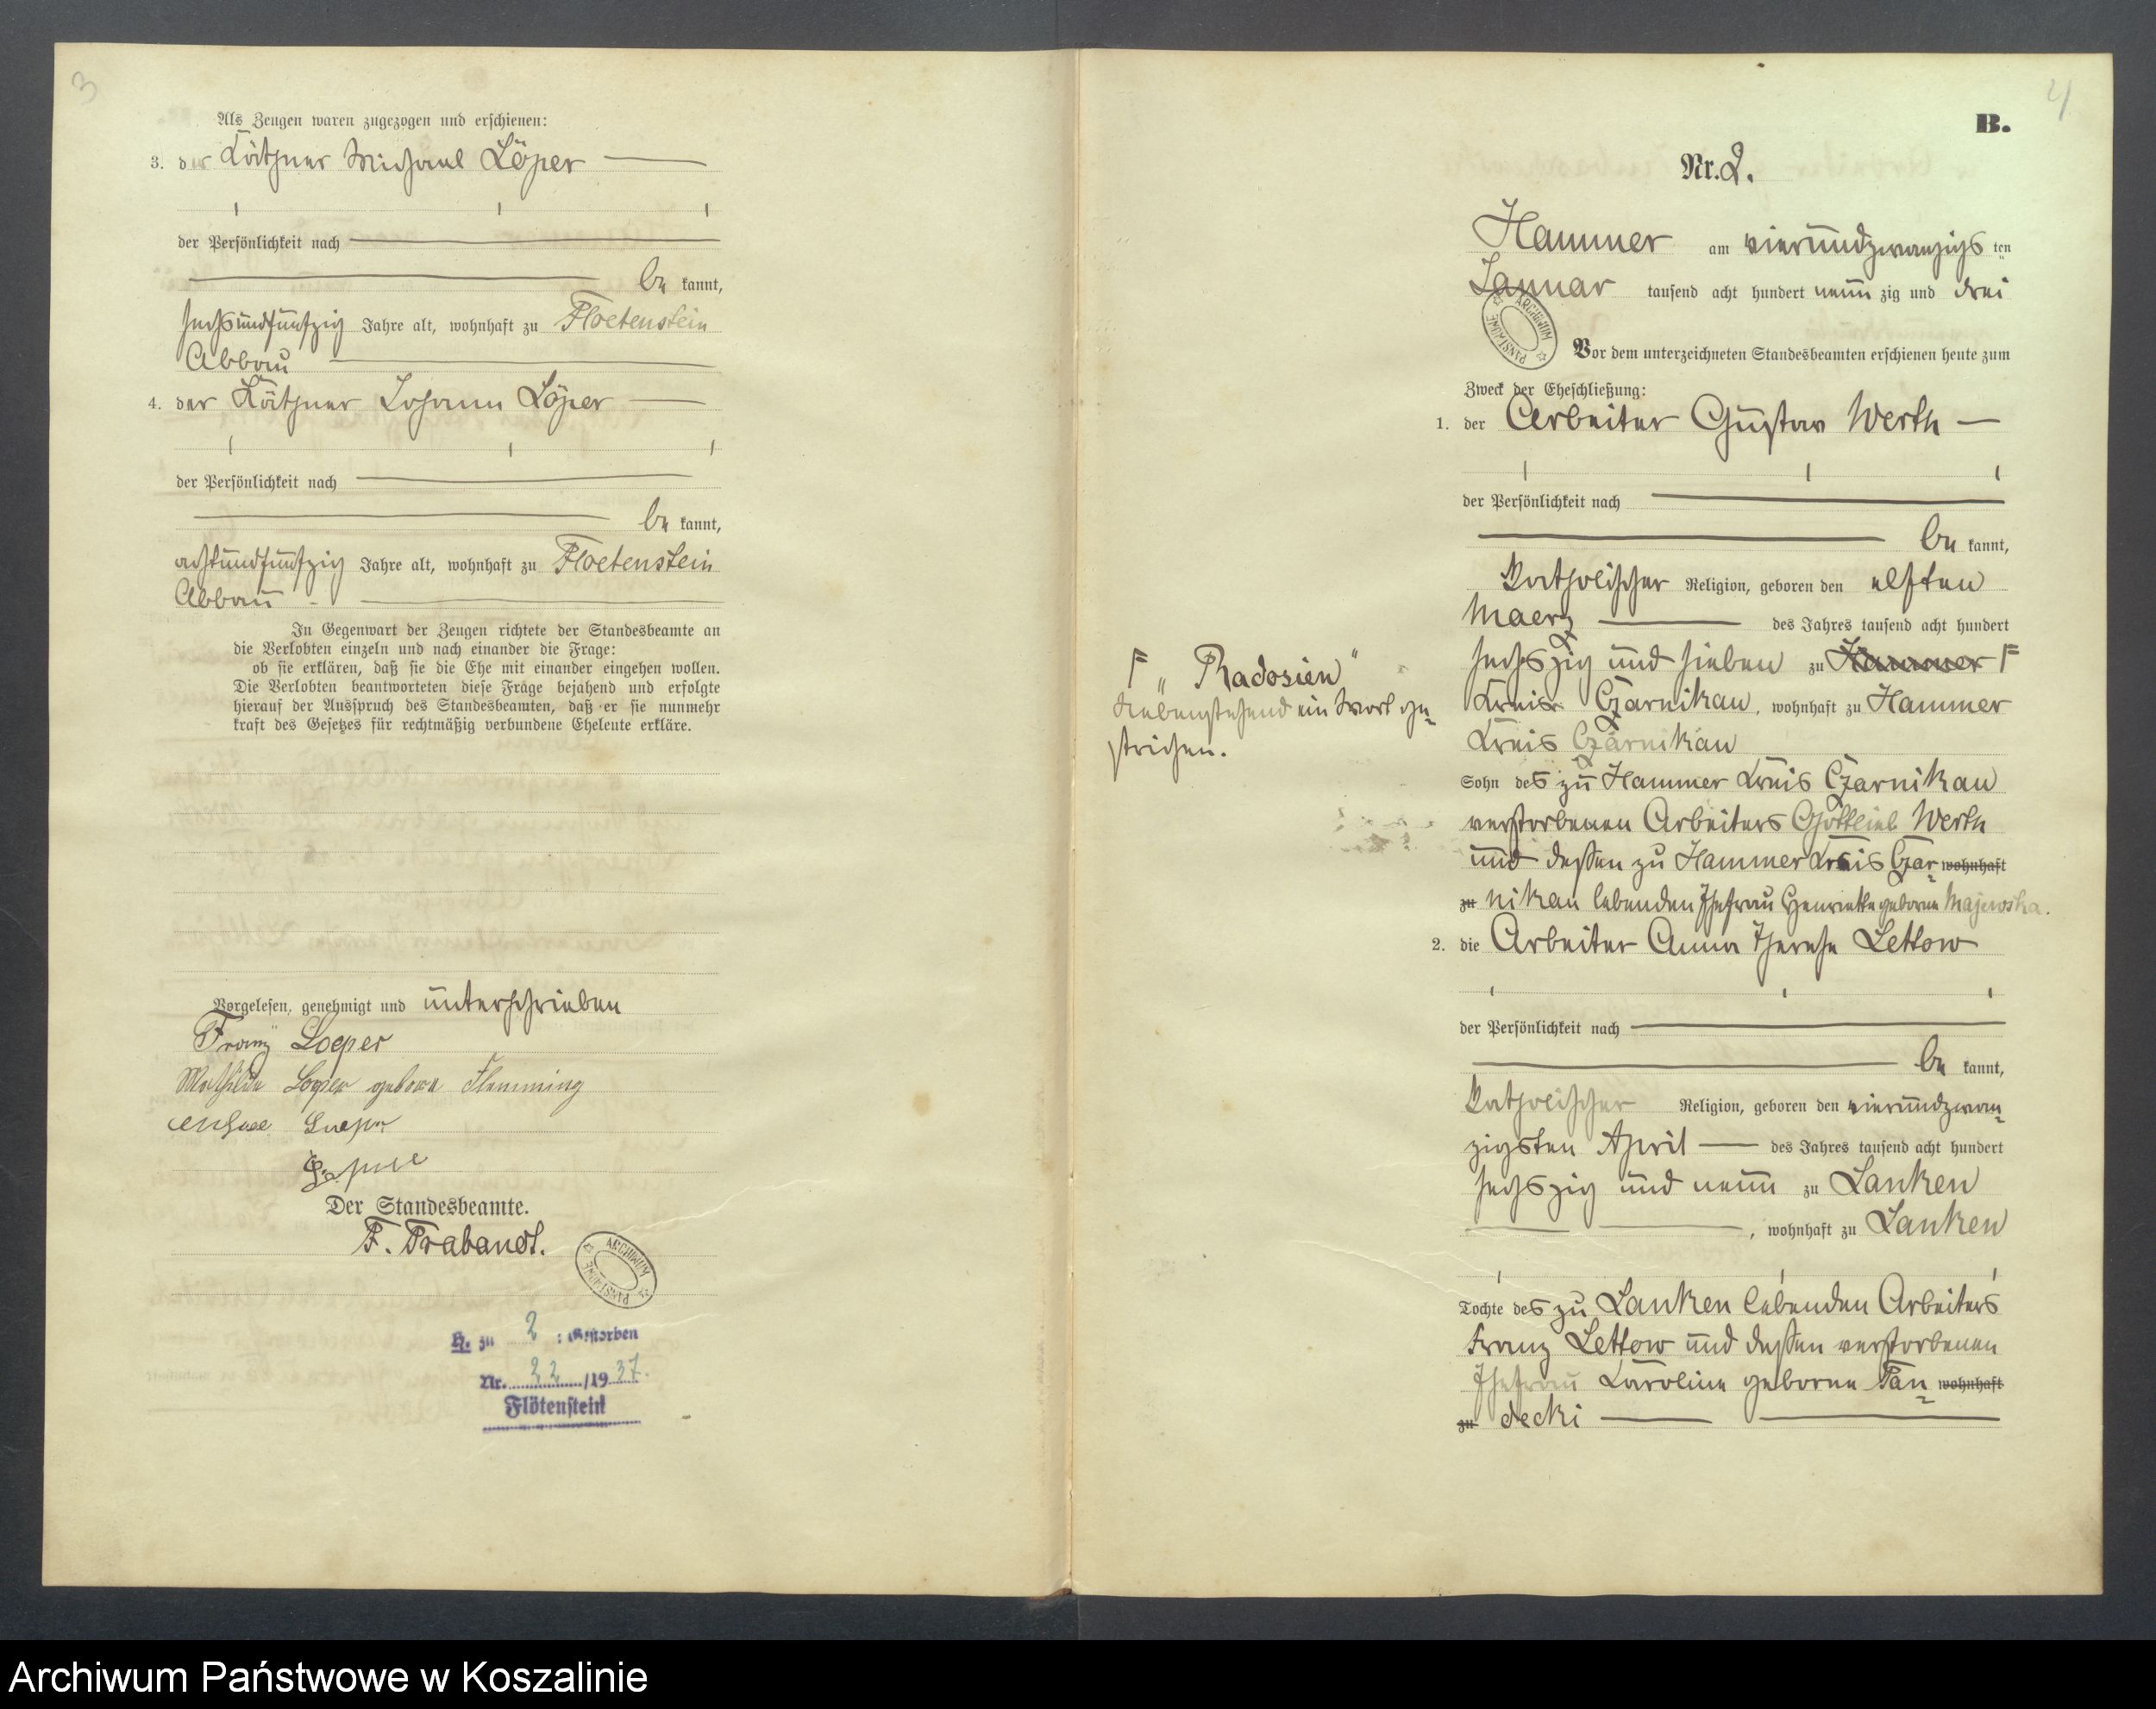 3
Als Zeugen waren zugezogen und erschienen:
3. der Käthner Michael Löper
der Persönlichkeit nach
be kannt,
sechsundfünfzig Jahre alt, wohnhaft zu Floetenstein
Abbau
4. der Käthner Johann Löper
der Persönlichkeit nach
be kannt,
achtundfünfzig Jahre alt, wohnhaft zu Floetenstein
Abbau
In Gegenwart der Zeugen richtete der Standesbeamte an
die Verlobten einzeln und nach einander die Frage:
ob sie erklären, daß sie die Ehe mit einander eingehen wollen.
Die Verlobten beantworteten diese Frage bejahend und erfolgte
hierauf der Ausspruch des Standesbeamten, daß er sie nunmehr
kraft des Gesetzes für rechtmäßig verbundene Eheleute erkläre.
Vorgelesen, genehmigt und unterschrieben
Franz Loeper
Mathilde Loeper geborne Flemming
Loeper
Der Standesbeamte.
F. Trabandt.
ARCHIWUM PAŃSTWOWE
H. zu 2 : Gestorben
Nr. 22 /19 37.
Flötenstein
4
B.
Nr. 2.
Hammer am vierundzwanzigs ten
Januar tausend acht hundert neun zig und drei
ARCHIWUM PAŃSTWOWE
Vor dem unterzeichneten Standesbeamten erschienen heute zum
Zweck der Eheschließung:
1. der Arbeiter Gustav Werth
der Persönlichkeit nach
be kannt,
katholischer Religion, geboren den elften
Maerz des Jahres tausend acht hundert
sechszig und sieben zu Hammer F
Kreis Czarnikau, wohnhaft zu Hammer
Kreis Czarnikau
Sohn des zu Hammer Kreis Czarnikau
verstorbenen Arbeiters Gottlieb Werth
und dessen zu Hammer Kreis Czar- wohnhaft
zu nikau lebenden Ehefrau Henriette geborne Majewska.
2. die Arbeiter Anna Therese Lettow
der Persönlichkeit nach
be kannt,
katholischer Religion, geboren den vierundzwan-
zigsten April des Jahres tausend acht hundert
sechszig und neun zu Lanken
, wohnhaft zu Lanken
Tochte des zu Lanken lebenden Arbeiters
Franz Lettow und dessen verstorbenen
Ehefrau Karoline geborne Pan- wohnhaft
zu decki
F „Radosien"
Nebenstehend ein Wort ge-
strichen.
Archiwum Państwowe w Koszalinie